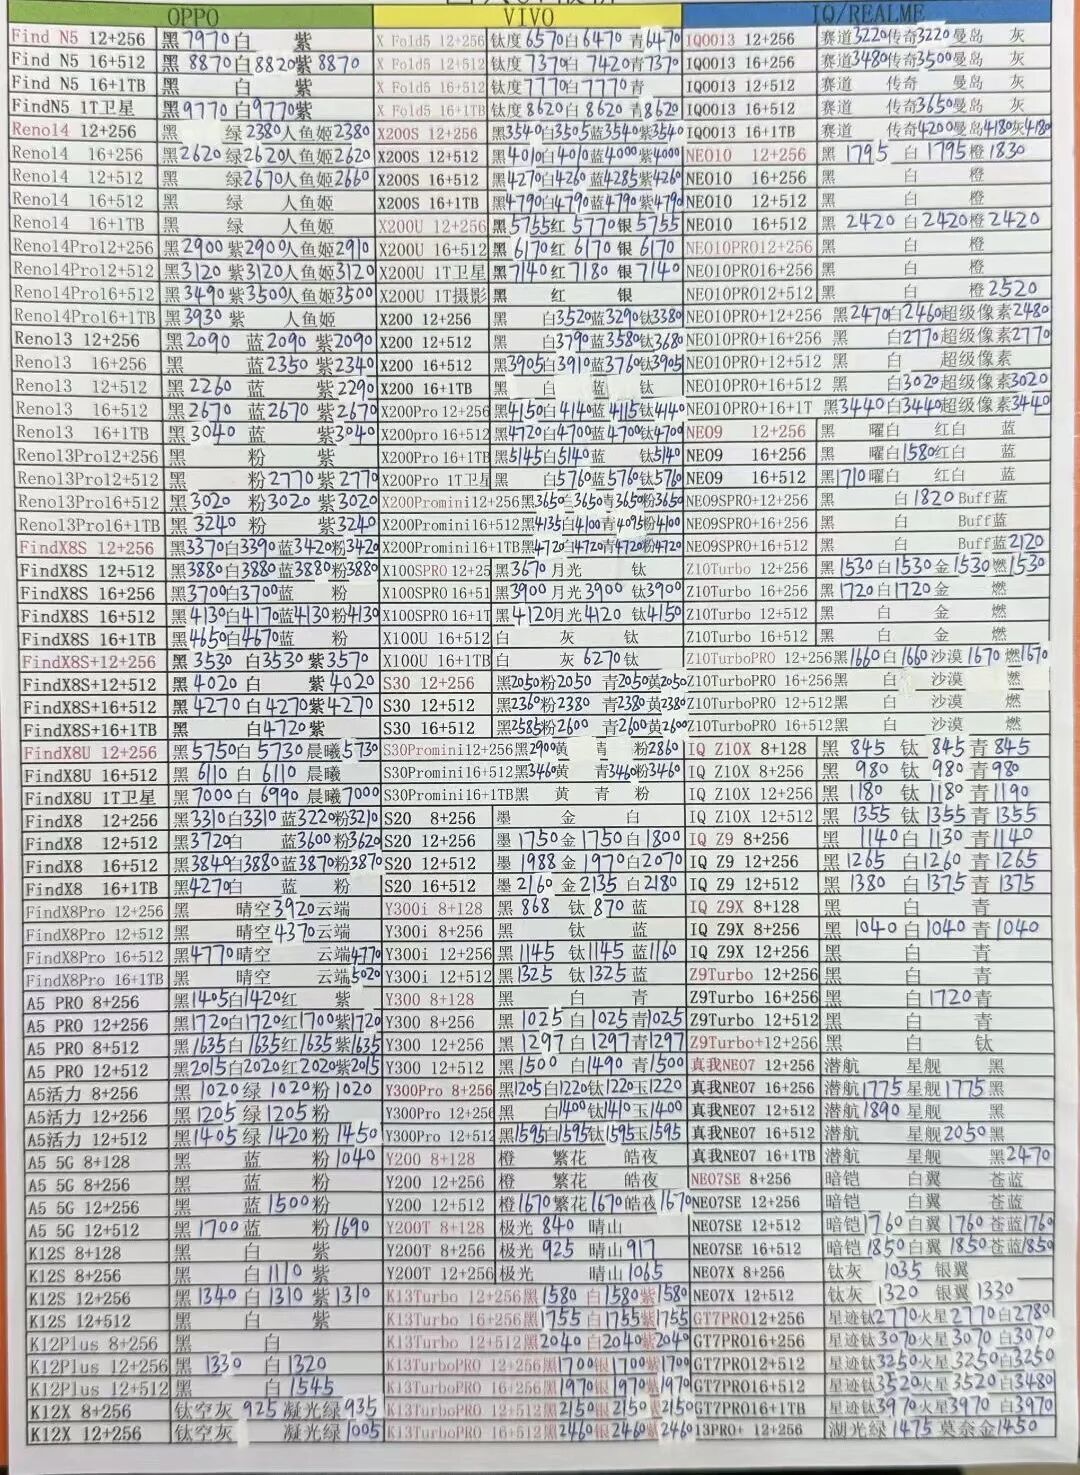 OPPO VIVO IQ/REALME
Find N5 12+256 黑7970白 紫 X Fold5 12+256 钛度6570白6470青6470 IQ0013 12+256 赛道3220传奇3220曼岛 灰
Find N5 16+512 黑8870白8820紫8870 X Fold5 12+512 钛度7370白7420青7370 IQ0013 16+256 赛道3480传奇3500曼岛 灰
Find N5 16+1TB 黑 白 紫 X Fold5 16+512 钛度7770白7770青 IQ0013 12+512 赛道 传奇 曼岛 灰
FindN5 1T卫星 黑9770白9770紫 X Fold5 16+1TB 钛度8620白8620青8620 IQ0013 16+512 赛道 传奇3650曼岛 灰
Reno14 12+256 黑 绿2380人鱼姬2380 X200S 12+256 黑3540白3505蓝3540紫3540 IQ0013 16+1TB 赛道 传奇4200曼岛4180灰4180
Reno14 16+256 黑2620绿2620人鱼姬2620 X200S 12+512 黑4010白4010蓝4000紫4000 NEO10 12+256 黑 1795 白 1795橙1830
Reno14 12+512 黑 绿2670人鱼姬2660 X200S 16+512 黑4270白4260蓝4285紫4260 NEO10 16+256 黑 白 橙
Reno14 16+512 黑 绿 人鱼姬 X200S 16+1TB 黑4790白4790蓝4790紫4790 NEO10 12+512 黑 白 橙
Reno14 16+1TB 黑 绿 人鱼姬 X200U 12+256 黑5755红5770银5755 NEO10 16+512 黑 2420 白 2420橙2420
Reno14Pro12+256 黑2900紫2900人鱼姬2910 X200U 16+512 黑6170红6170银6170 NEO10PRO12+256 黑 白 橙
Reno14Pro12+512 黑3120紫3120人鱼姬3120 X200U 1T卫星 黑7140红7180银7140 NEO10PRO16+256 黑 白 橙
Reno14Pro16+512 黑3490紫3500人鱼姬3500 X200U 1T摄影 黑 红 银 NEO10PRO12+512 黑 白 橙2520
Reno14Pro16+1TB 黑3930紫 人鱼姬 X200 12+256 黑 白3520蓝3290钛3380 NEO10PRO+12+256 黑2470白2460超级像素2480
Reno13 12+256 黑2090 蓝2090紫2090 X200 12+512 黑 白3790蓝3580钛3680 NEO10PRO+16+256 黑 白2770超级像素2770
Reno13 16+256 黑 蓝2350紫2340 X200 16+512 黑3905白3910蓝3760钛3905 NEO10PRO+12+512 黑 白 超级像素
Reno13 12+512 黑2260 蓝 紫2290 X200 16+1TB 黑 白 蓝 钛 NEO10PRO+16+512 黑 白3020超级像素3020
Reno13 16+512 黑2670 蓝2670紫2670 X200Pro 12+256 黑4150白4140蓝4115钛4140 NEO10PRO+16+1T 黑3440白3440超级像素3440
Reno13 16+1TB 黑3040 蓝 紫3040 X200pro 16+512 黑4720白4700蓝4700钛4700 NEO9 12+256 黑 曜白 红白 蓝
Reno13Pro12+256 黑 粉 紫 X200Pro 16+1TB 黑5145白5140蓝 钛5140 NEO9 16+256 黑 曜白1580红白 蓝
Reno13Pro12+512 黑 粉2770紫2770 X200Pro 1T卫星 黑 白5760蓝5760钛5760 NEO9 16+512 黑1710曜白 红白 蓝
Reno13Pro16+512 黑3020 粉3020紫3020 X200Promini12+256 黑3650白3650青3650粉3650 NEO9SPRO+12+256 黑 白1820 Buff蓝
Reno13Pro16+1TB 黑3240 粉 紫3240 X200Promini16+512 黑4135白4100青4095粉4100 NEO9SPRO+16+256 黑 白 Buff蓝
FindX8S 12+256 黑3370白3390蓝3420粉3420 X200Promini16+1TB 黑4720白4720青4720粉4720 NEO9SPRO+16+512 黑 白 Buff蓝2120
FindX8S 12+512 黑3880白3880蓝3880粉3880 X100SPRO 12+25 黑3670月光 钛 Z10Turbo 12+256 黑1530白1530金1530燃1530
FindX8S 16+256 黑3700白3700蓝 粉 X100SPRO 16+51 黑3900月光3900钛3900 Z10Turbo 16+256 黑1720白1720金 燃
FindX8S 16+512 黑4130白4170蓝4130粉4130 X100SPRO 16+1T 黑4120月光4120钛4150 Z10Turbo 12+512 黑 白 金 燃
FindX8S 16+1TB 黑4650白4670蓝 粉 X100U 16+512 白 灰 钛 Z10Turbo 16+512 黑 白 金 燃
FindX8S+12+256 黑3530 白3530紫3570 X100U 16+1TB 白 灰6270钛 Z10TurboPRO 12+256 黑1660白1660沙漠1670燃1670
FindX8S+12+512 黑4020白 紫4020 S30 12+256 黑2050粉2050青2050黄2050 Z10TurboPRO 16+256 黑 白 沙漠 燃
FindX8S+16+512 黑4270白4270紫4270 S30 12+512 黑2360粉2380青2380黄2380 Z10TurboPRO 12+512 黑 白 沙漠 燃
FindX8S+16+1TB 黑 白4720紫 S30 16+512 黑2585粉2600青2600黄2600 Z10TurboPRO 16+512 黑 白 沙漠 燃
FindX8U 12+256 黑5750白5730晨曦5730 S30Promini12+256 黑2900黄 青 粉2860 IQ Z10X 8+128 黑 845 钛 845青845
FindX8U 16+512 黑6110白6110晨曦 S30Promini16+512 黑3460黄 青3460粉3460 IQ Z10X 8+256 黑 980 钛 980青980
FindX8U 1T卫星 黑7000白6990晨曦7000 S30Promini16+1TB 黑 黄 青 粉 IQ Z10X 12+256 黑 1180 钛 1180青1190
FindX8 12+256 黑3310白3310蓝3220粉3210 S20 8+256 墨 金 白 IQ Z10X 12+512 黑 1355 钛 1355青1355
FindX8 12+512 黑3720白 蓝3600粉3620 S20 12+256 墨1750金1750白1800 IQ Z9 8+256 黑 1140白1130青1140
FindX8 16+512 黑3840白3880蓝3870粉3870 S20 12+512 墨1988金1970白2070 IQ Z9 12+256 黑1265 白1260青1265
FindX8 16+1TB 黑4270白 蓝 粉 S20 16+512 墨2160金2135白2180 IQ Z9 12+512 黑1380 白1375青1375
FindX8Pro 12+256 黑 晴空3920云端 Y300i 8+128 黑868 钛870蓝 IQ Z9X 8+128 黑 白 青
FindX8Pro 12+512 黑 晴空4370云端 Y300i 8+256 黑 钛 蓝 IQ Z9X 8+256 黑 1040白1040青1040
FindX8Pro 16+512 黑4770晴空 云端4770 Y300i 12+256 黑1145 钛1145蓝1160 IQ Z9X 12+256 黑 白 青
FindX8Pro 16+1TB 黑 晴空 云端5020 Y300i 12+512 黑1325 钛1325蓝 Z9Turbo 12+256 黑 白 青
A5 PRO 8+256 黑1405白1420红 紫 Y300 8+128 黑 白 青 Z9Turbo 16+256 黑 白1720青
A5 PRO 12+256 黑1720白1720红1700紫1720 Y300 8+256 黑 1025白1025青1025 Z9Turbo 12+512 黑 白 青
A5 PRO 8+512 黑1635白1635红1635紫1635 Y300 12+256 黑 1297白1297青1297 Z9Turbo+12+256 黑 白 钛
A5 PRO 12+512 黑2015白2020红2020紫2015 Y300 12+512 黑1500 白1490青1500 真我NEO7 12+256 潜航 星舰 黑
A5活力 8+256 黑 1020绿1020粉1020 Y300Pro 8+256 黑1205白1220钛1220玉1220 真我NEO7 16+256 潜航1775星舰1775黑
A5活力 12+256 黑1205绿1205粉 Y300Pro 12+256 黑 白1400钛1410玉1400 真我NEO7 12+512 潜航1890星舰 黑
A5活力 12+512 黑1405绿1420粉1450 Y300Pro 12+512 黑1595白1595钛1595玉1595 真我NEO7 16+512 潜航 星舰2050黑
A5 5G 8+128 黑 蓝 粉1040 Y200 8+128 橙 繁花 皓夜 真我NEO7 16+1TB 潜航 星舰 黑2470
A5 5G 8+256 黑 蓝 粉 Y200 8+256 橙 繁花 皓夜 NEO7SE 8+256 暗铠 白翼 苍蓝
A5 5G 12+256 黑 蓝1500粉 Y200 12+512 橙1670繁花1670皓夜1670 NEO7SE 12+256 暗铠 白翼 苍蓝
A5 5G 12+512 黑1700蓝 粉1690 Y200T 8+128 极光840 晴山 NEO7SE 12+512 暗铠1760白翼1760苍蓝1760
K12S 8+128 黑 白 紫 Y200T 8+256 极光925 晴山917 NEO7SE 16+512 暗铠1850白翼1850苍蓝1850
K12S 8+256 黑 白1110紫 Y200T 12+256 极光 晴山1065 NEO7X 8+256 钛灰 1035 银翼
K12S 12+256 黑1340白1310紫1310 K13Turbo 12+256 黑1580白1580紫1580 NEO7X 12+512 钛灰 1320 银翼1330
K12S 12+512 黑 白 紫 K13Turbo 16+256 黑1755白1755紫1755 GT7PRO12+256 星迹钛2770火星2770白2780
K12Plus 8+256 黑 白 K13Turbo 12+512 黑2040白2040紫2040 GT7PRO16+256 星迹钛3070火星3070白3070
K12Plus 12+256 黑 1330 白1320 K13TurboPRO 12+256 黑1700银1700紫1700 GT7PRO12+512 星迹钛3250火星3250白3250
K12Plus 12+512 黑 白1545 K13TurboPRO 16+256 黑1970银1970紫1970 GT7PRO16+512 星迹钛3520火星3520白3480
K12X 8+256 钛空灰925凝光绿935 K13TurboPRO 12+512 黑2150银2150紫2150 GT7PRO16+1TB 星迹钛3970火星3970白3970
K12X 12+256 钛空灰 凝光绿1005 K13TurboPRO 16+512 黑2460银2460紫2460 13PRO+ 12+256 湖光绿1475莫奈金1450